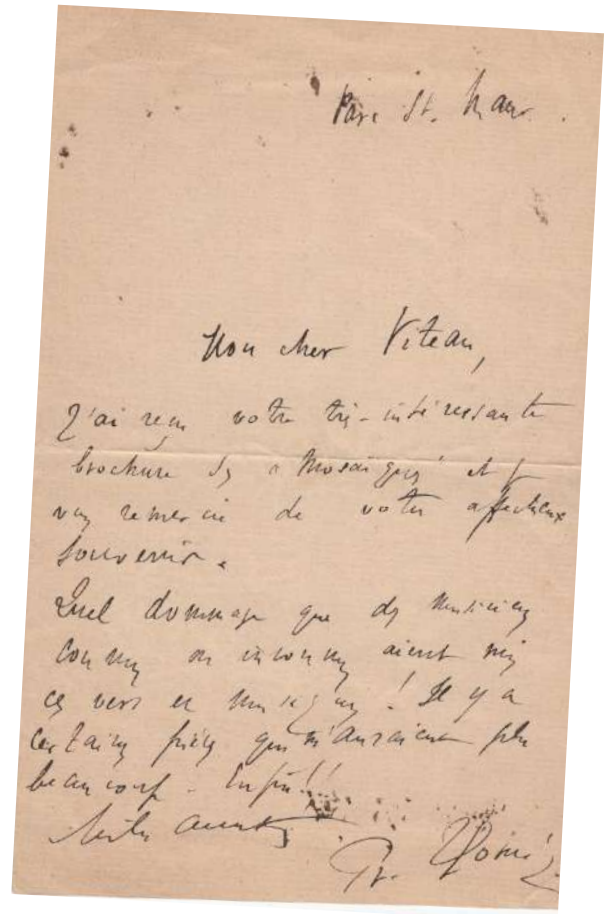 Parc St. Maur.
Mon cher Viteau,
J'ai reçu votre très-intéressante
brochure des « Mosaïques » et je
vous remercie de votre affectueux
souvenir.
Quel dommage que des musiciens
connus ou inconnus aient mis
ces vers en musique ! Il y a
certaines pièces qui m'auraient plu
beaucoup. Enfin !!
Fr. Thomé